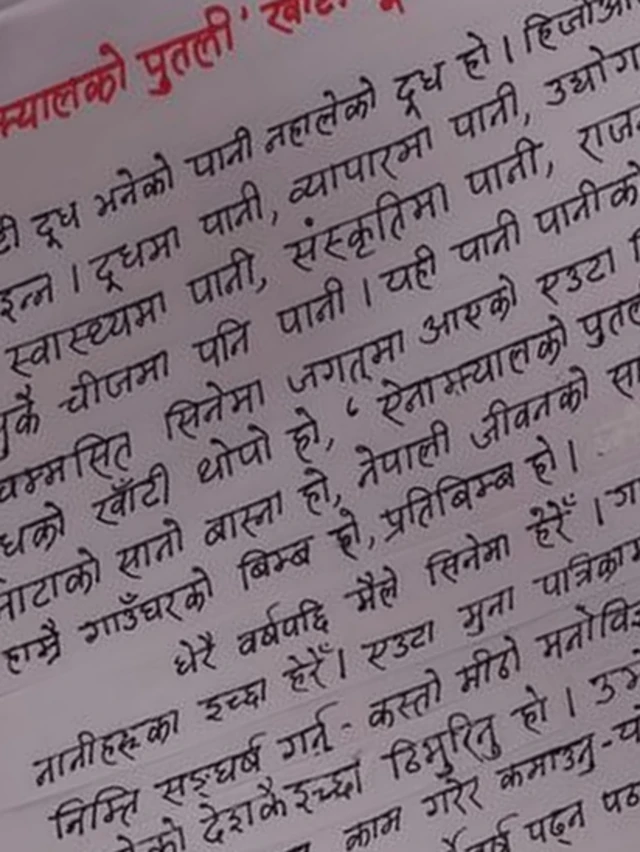 झ्यालको पुतली' खाँटी
दूध भनेको पानी नहालेको दूध हो । हिजोआ
इन्न । दूधमा पानी, व्यापारमा पानी, उद्योग
स्वास्थ्यमा पानी, संस्कृतिमा पानी, राज
चीजमा पनि पानी । यही पानी पानीको
सिनेमा जगत्‌मा आएको एउटा
धको खाँटी थोपो हो, 'ऐनाझ्यालको पुतल
माटाको सानो बास्ना हो, नेपाली जीवनको सा
हाम्रै गाउँघरको बिम्ब हो, प्रतिबिम्ब हो ।
धेरै वर्षपछि मैले सिनेमा हेरेँ । ग
नानीहरूका इच्छा हेरेँ । एउटा मुना पात्रिका
निम्ति सङ्घर्ष गर्नु - कस्तो मीठो मनोवि
देशकै इच्छा टिमुरिनु हो ।
काम गरेर कमाउनु -
पढ्न